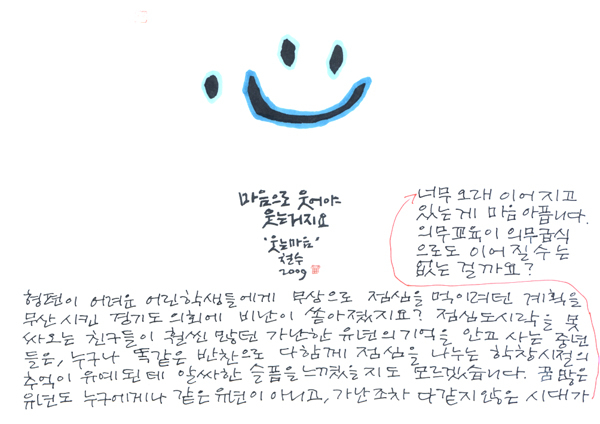 마음으로 웃어야
웃는거지요
'웃는마음'
철수
2009
형편이 어려운 어린학생들에게 무상으로 점심을 먹이려던 계획을
무산 시킨 경기도 의회에 비난이 쏟아졌지요? 점심도시락을 못
싸오는 친구들이 훨씬 많던 가난한 유년의 기억을 안고 사는 중년
들은, 누구나 똑같은 반찬으로 다함께 점심을 나누는 학창시절의
추억이 유예된데 알싸한 슬픔을 느꼈을지도 모르겠습니다. 꿈많은
유년도 누구에게나 같은 유년이 아니고, 가난조차 다같지 않은 시대가
너무 오래 이어지고
있는게 마음아픕니다.
의무교육이 의무급식
으로도 이어질수는
없는 걸까요?